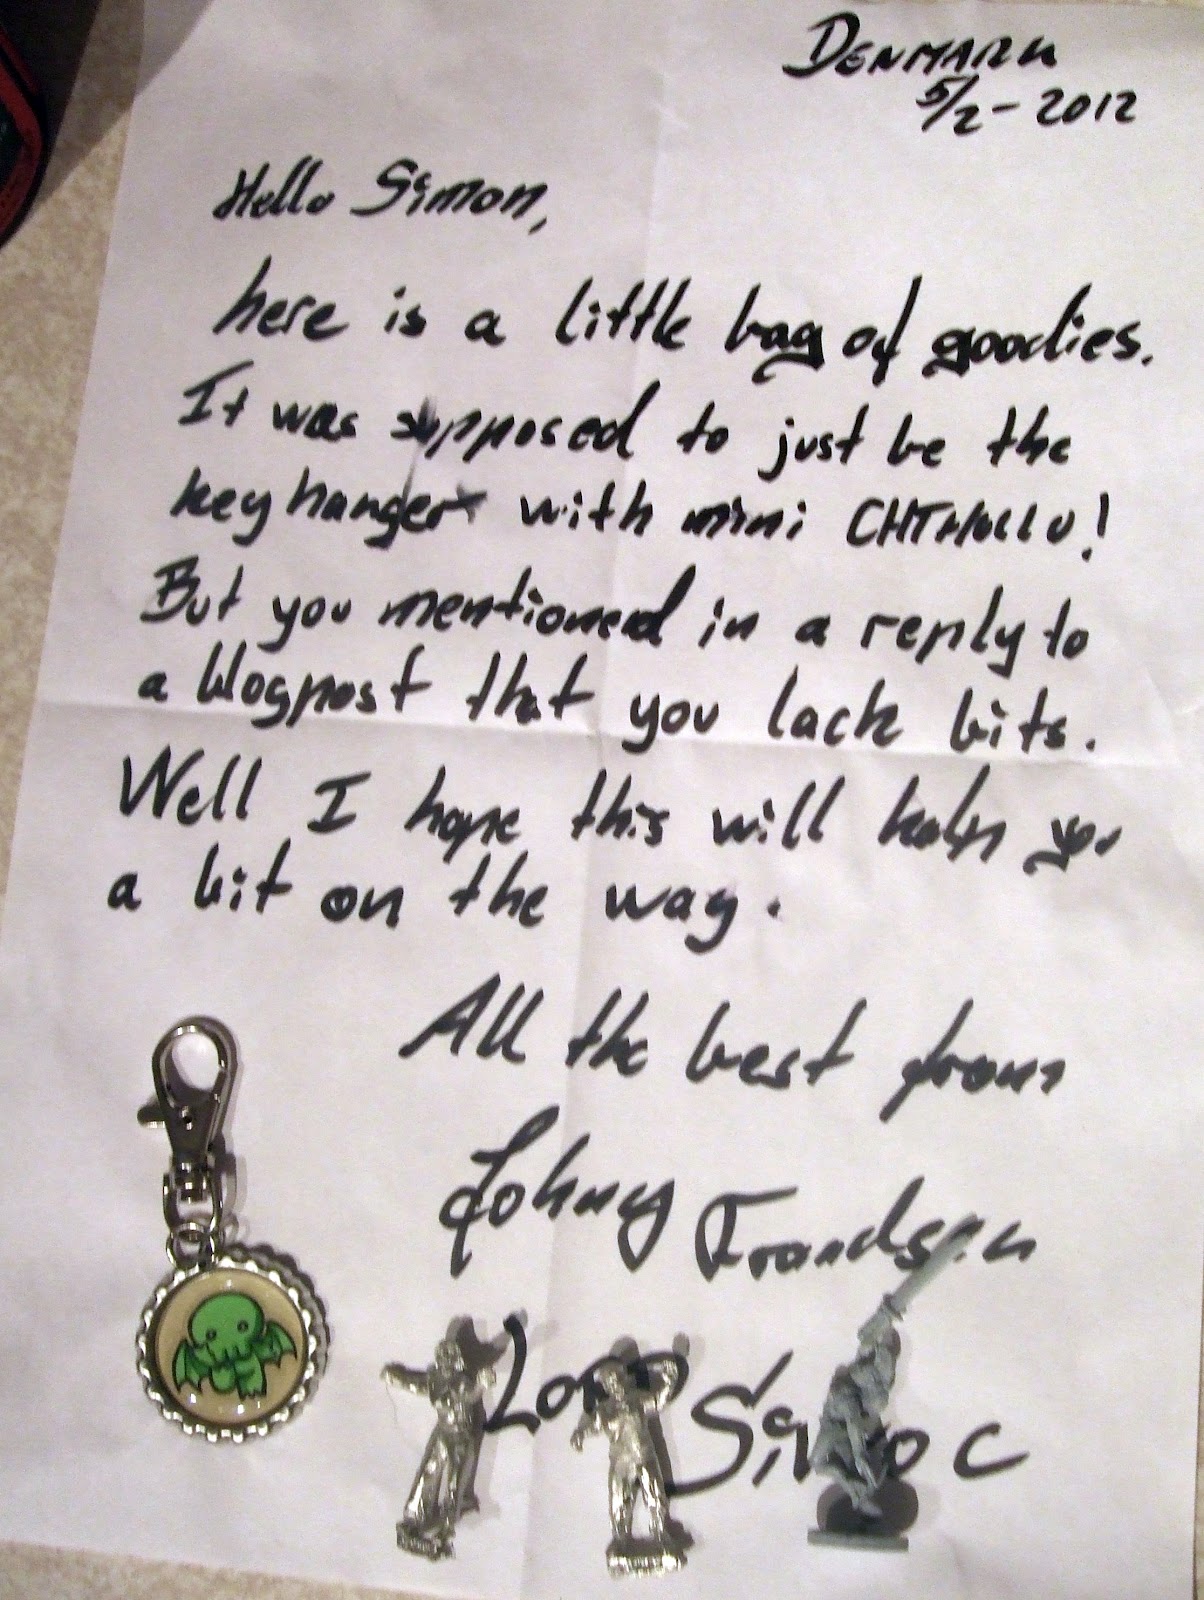 DENMARK
5/2-2012
Hello Simon,
here is a little bag of goodies.
It was supposed to just be the
keyhanger with mini CHTHULLU!
But you mentioned in a reply to
a blogpost that you lack bits.
Well I hope this will help you
a bit on the way.
All the best from
Johnny Frandsen